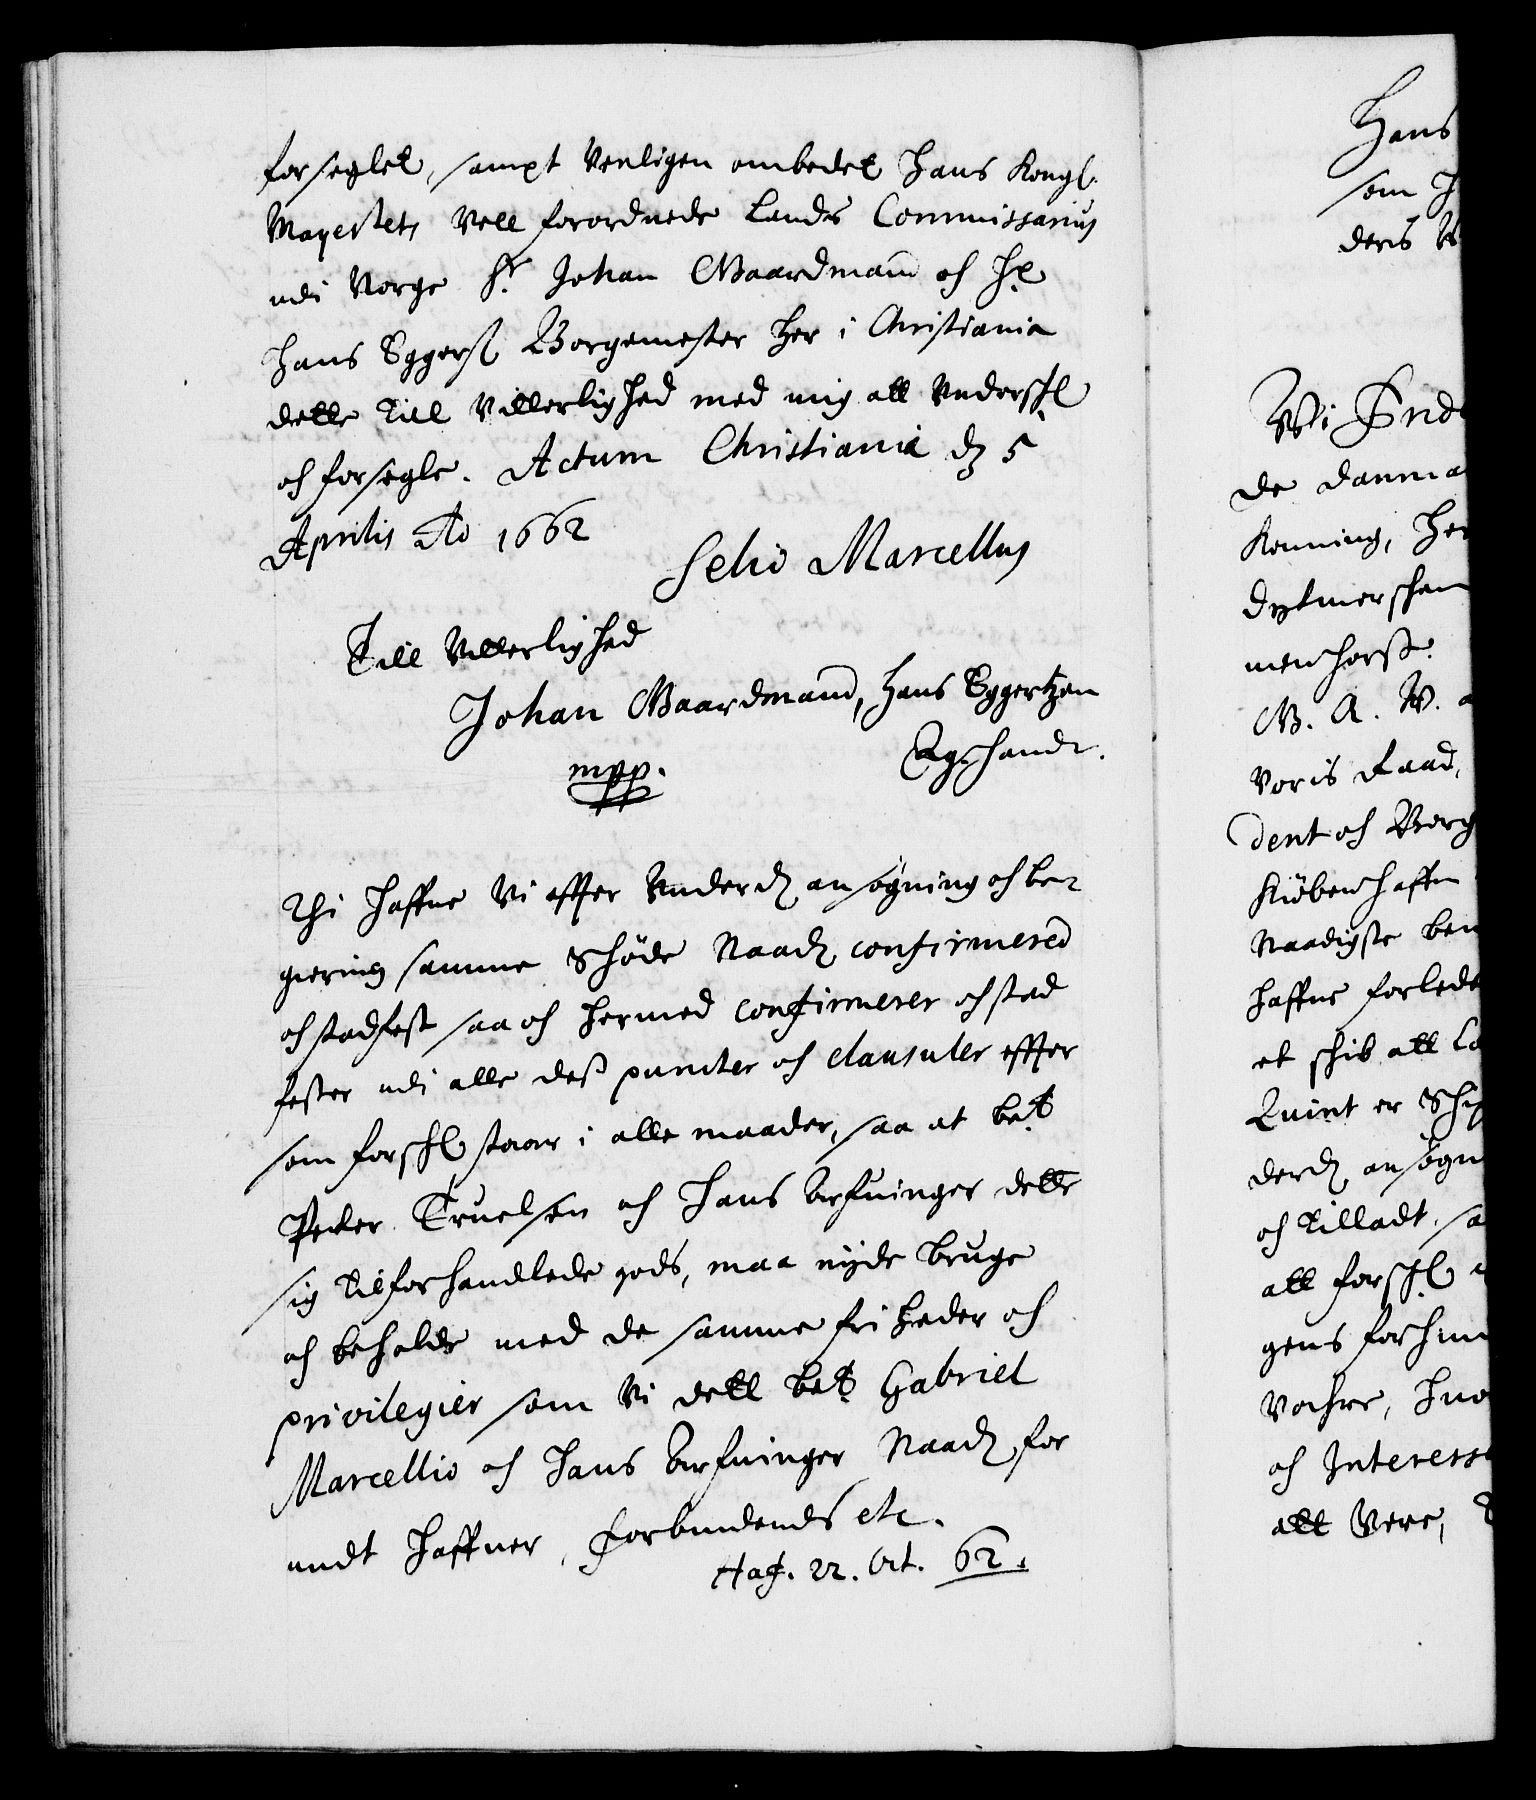 forseglet, sampt Venligen ombedet Hans Kongl.
Mayestets Vell forordnede Lands Commissarius
udi Norge Hr. Johan Waardmand och Hr
Hans Eggerß Borgemester her i Christiania
dette till Vitterlighed med mig att Underschr
och forsegle. Actum Christianiæ dz 5
Aprilis Ao 1662
Selio Marcellus
Till Vitterlighed
Johan Waardmand, Hans Eggertzen
mpp. Egh handt.
Thi haffue Vi effter Underd ansögning och be-
giering samme Schöde Naad confirmered
och stadfest saa och hermed confirmerer och stad
fester udi alle deß puncter och clausuler effter
som forschr staar i alle maader, saa at bet
Peder Truelsen och Hans Arfuinger dette
sig tilforhandlede gods, maa nyde bruge
och beholde med de samme friheder och
privilegier som Vi dett bet Gabriel
Marcellio och Hans Arfuinger Naad for
undt haffuer, forbundends etc.
Haf. 22. Oct. 62.
Hans
som
deris
Wi Frid
de Danma
Konning, Her
Dytmerschen
menhorst.
W. A. W.
Voris Raad,
dent och Borg
Kiöbenhaffn
Naadigste ben
haffue forlede
et schib att
Quint er Schi
derd ansögn
och tilladt, sa
att forschr
gens forhin
Vachre,
och Interess
att Vere,